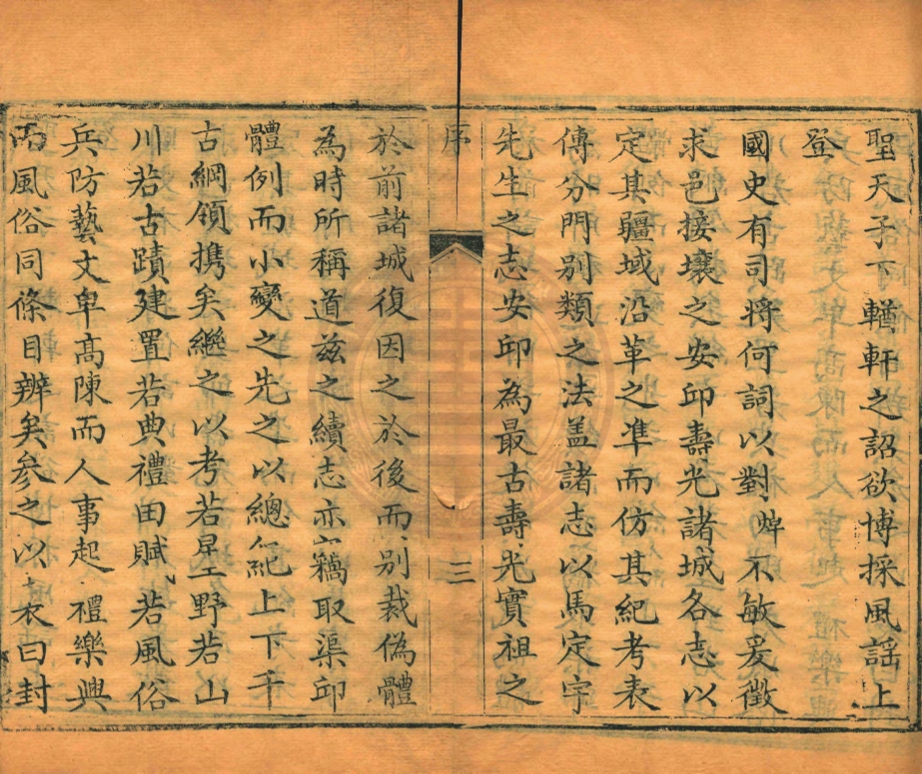 聖天子下輶軒之詔欲博採風謡上
登
國史有司將何詞以對焯不敏爰徵
求邑接壤之安邱壽光諸城各志以
定其疆域沿革之凖而仿其紀考表
傳分門别類之法盖諸志以馬定宇
先生之志安邱為最古壽光實祖之
序
三
於前諸城復因之於後而别裁偽體
為時所稱道兹之續志亦竊取渠邱
體例而小變之先之以總紀上下千
古綱領携矣繼之以考若星野若山
川若古蹟建置若典禮田賦若風俗
兵防藝文卑高陳而人事起禮樂興
而風俗同條目辨矣參之以表曰封